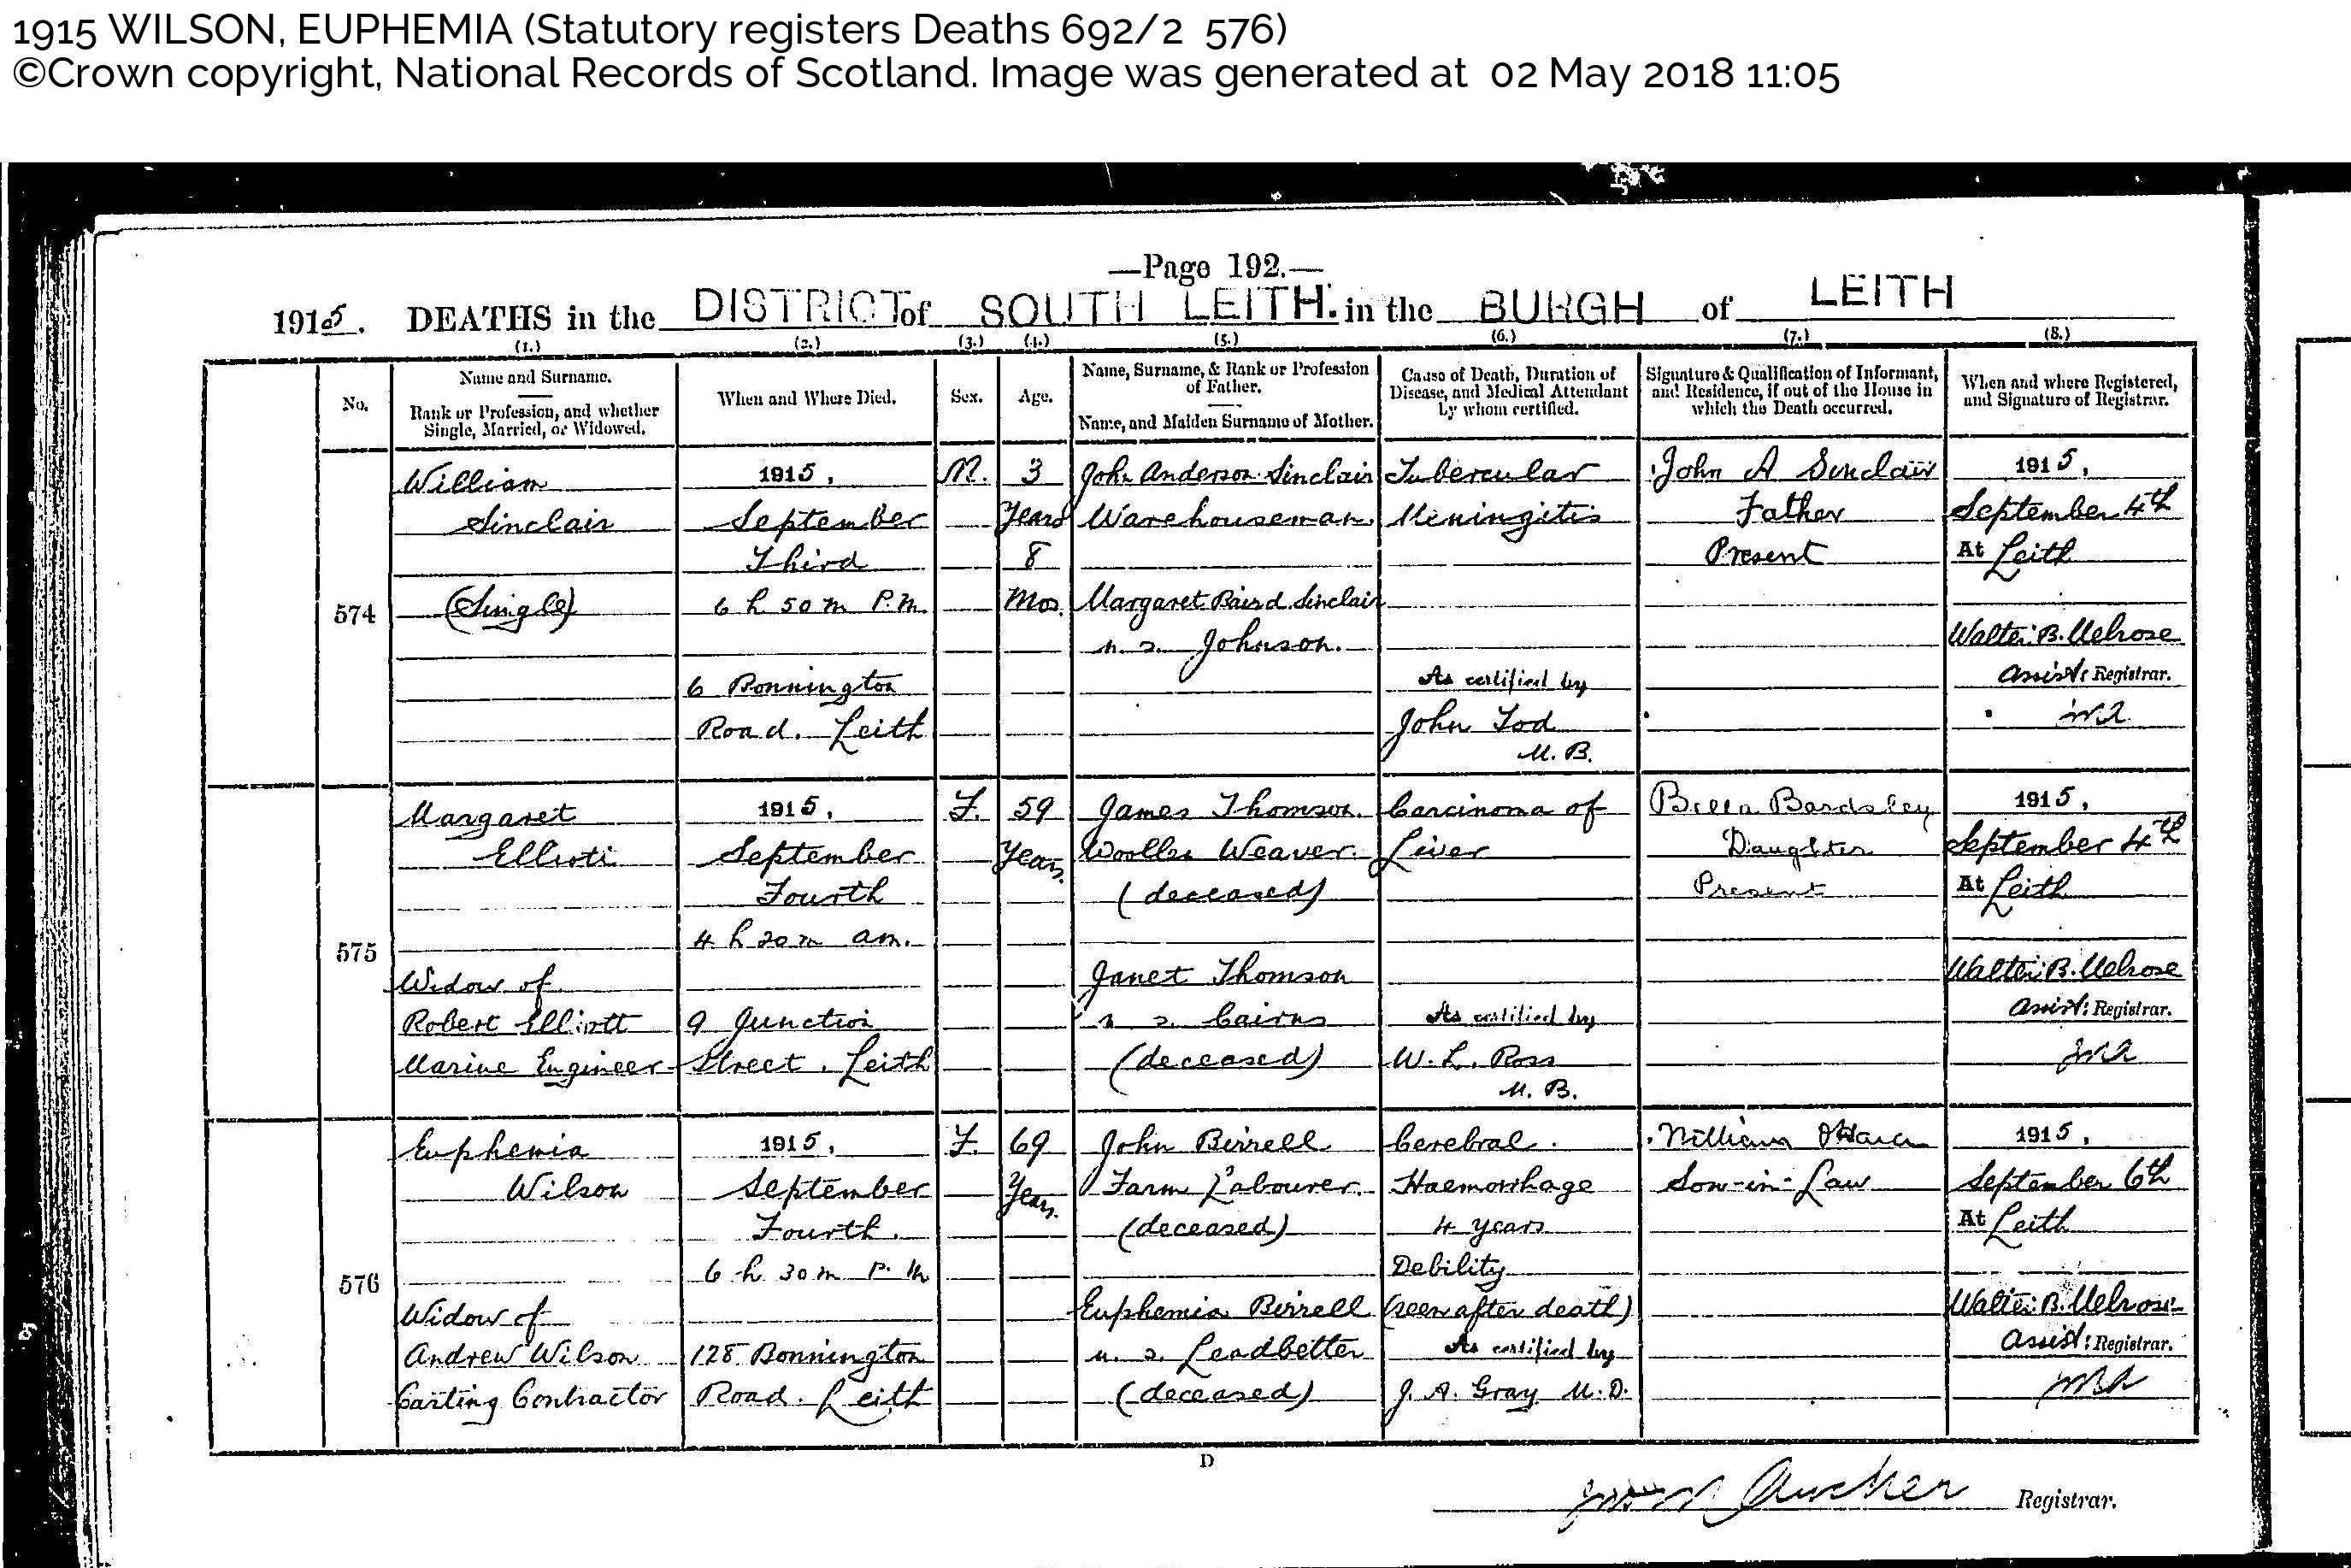 1915 WILSON, EUPHEMIA (Statutory registers Deaths 692/2 576)
©Crown copyright, National Records of Scotland. Image was generated at 02 May 2018 11:05
—Page 192.—
1915. DEATHS in the DISTRICT of SOUTH LEITH. in the BURGH of LEITH
(1.) (2.) (3.) (4.) (5.) (6.) (7.) (8.)
No.
Name and Surname.
Rank or Profession, and whether
Single, Married, or Widowed.
When and Where Died.
Sex.
Age.
Name, Surname, & Rank or Profession
of Father.
Name, and Maiden Surname of Mother.
Cause of Death, Duration of
Disease, and Medical Attendant
by whom certified.
Signature & Qualification of Informant,
and Residence, if out of the House in
which the Death occurred.
When and where Registered,
and Signature of Registrar.
574
William
Sinclair
(Single)
1915,
September
Third
6 h 50 m P.M.
6 Bonnington
Road. Leith
M.
3
Years
8
Mos.
John Anderson Sinclair
Warehouseman
Margaret Baird Sinclair
n. s. Johnson.
Tubercular
Meningitis
As certified by
John Tod
M. B.
John A Sinclair
Father
Present
1915,
September 4th
At Leith
Walter B. Melrose
Assist: Registrar.
575
Margaret
Elliott
Widow of
Robert Elliott
Marine Engineer
1915,
September
Fourth
4 h 20 m am.
9 Junction
Street. Leith
F.
59
Years.
James Thomson
Woollen Weaver.
(deceased)
Janet Thomson
n s. Cairns
(deceased)
Carcinoma of
Liver
As certified by
W. L. Ross
M. B.
Bella Bardsley
Daughter
Present
1915,
September 4th
At Leith
Walter B. Melrose
Assist: Registrar.
576
Euphemia
Wilson
Widow of
Andrew Wilson
Carting Contractor
1915,
September
Fourth.
6 h 30 m P. M
128 Bonnington
Road. Leith
F.
69
Years.
John Birrell
Farm Labourer.
(deceased)
Euphemia Birrell
n. s. Leadbetter
(deceased)
Cerebral
Haemorrhage
4 years
Debility
(seen after death)
As certified by
J. A. Gray M.D.
William O'Hara
Son-in-Law
1915,
September 6th
At Leith
Walter B. Melrose
Assist: Registrar.
D
Registrar.